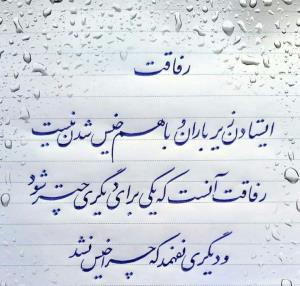 رفاقت
ایستادن زیر باران و باهم خیس شدن نیست
رفاقت آنست که یکی برای دیگری چتر شود
و دیگری نفهمد که چرا خیس نشد